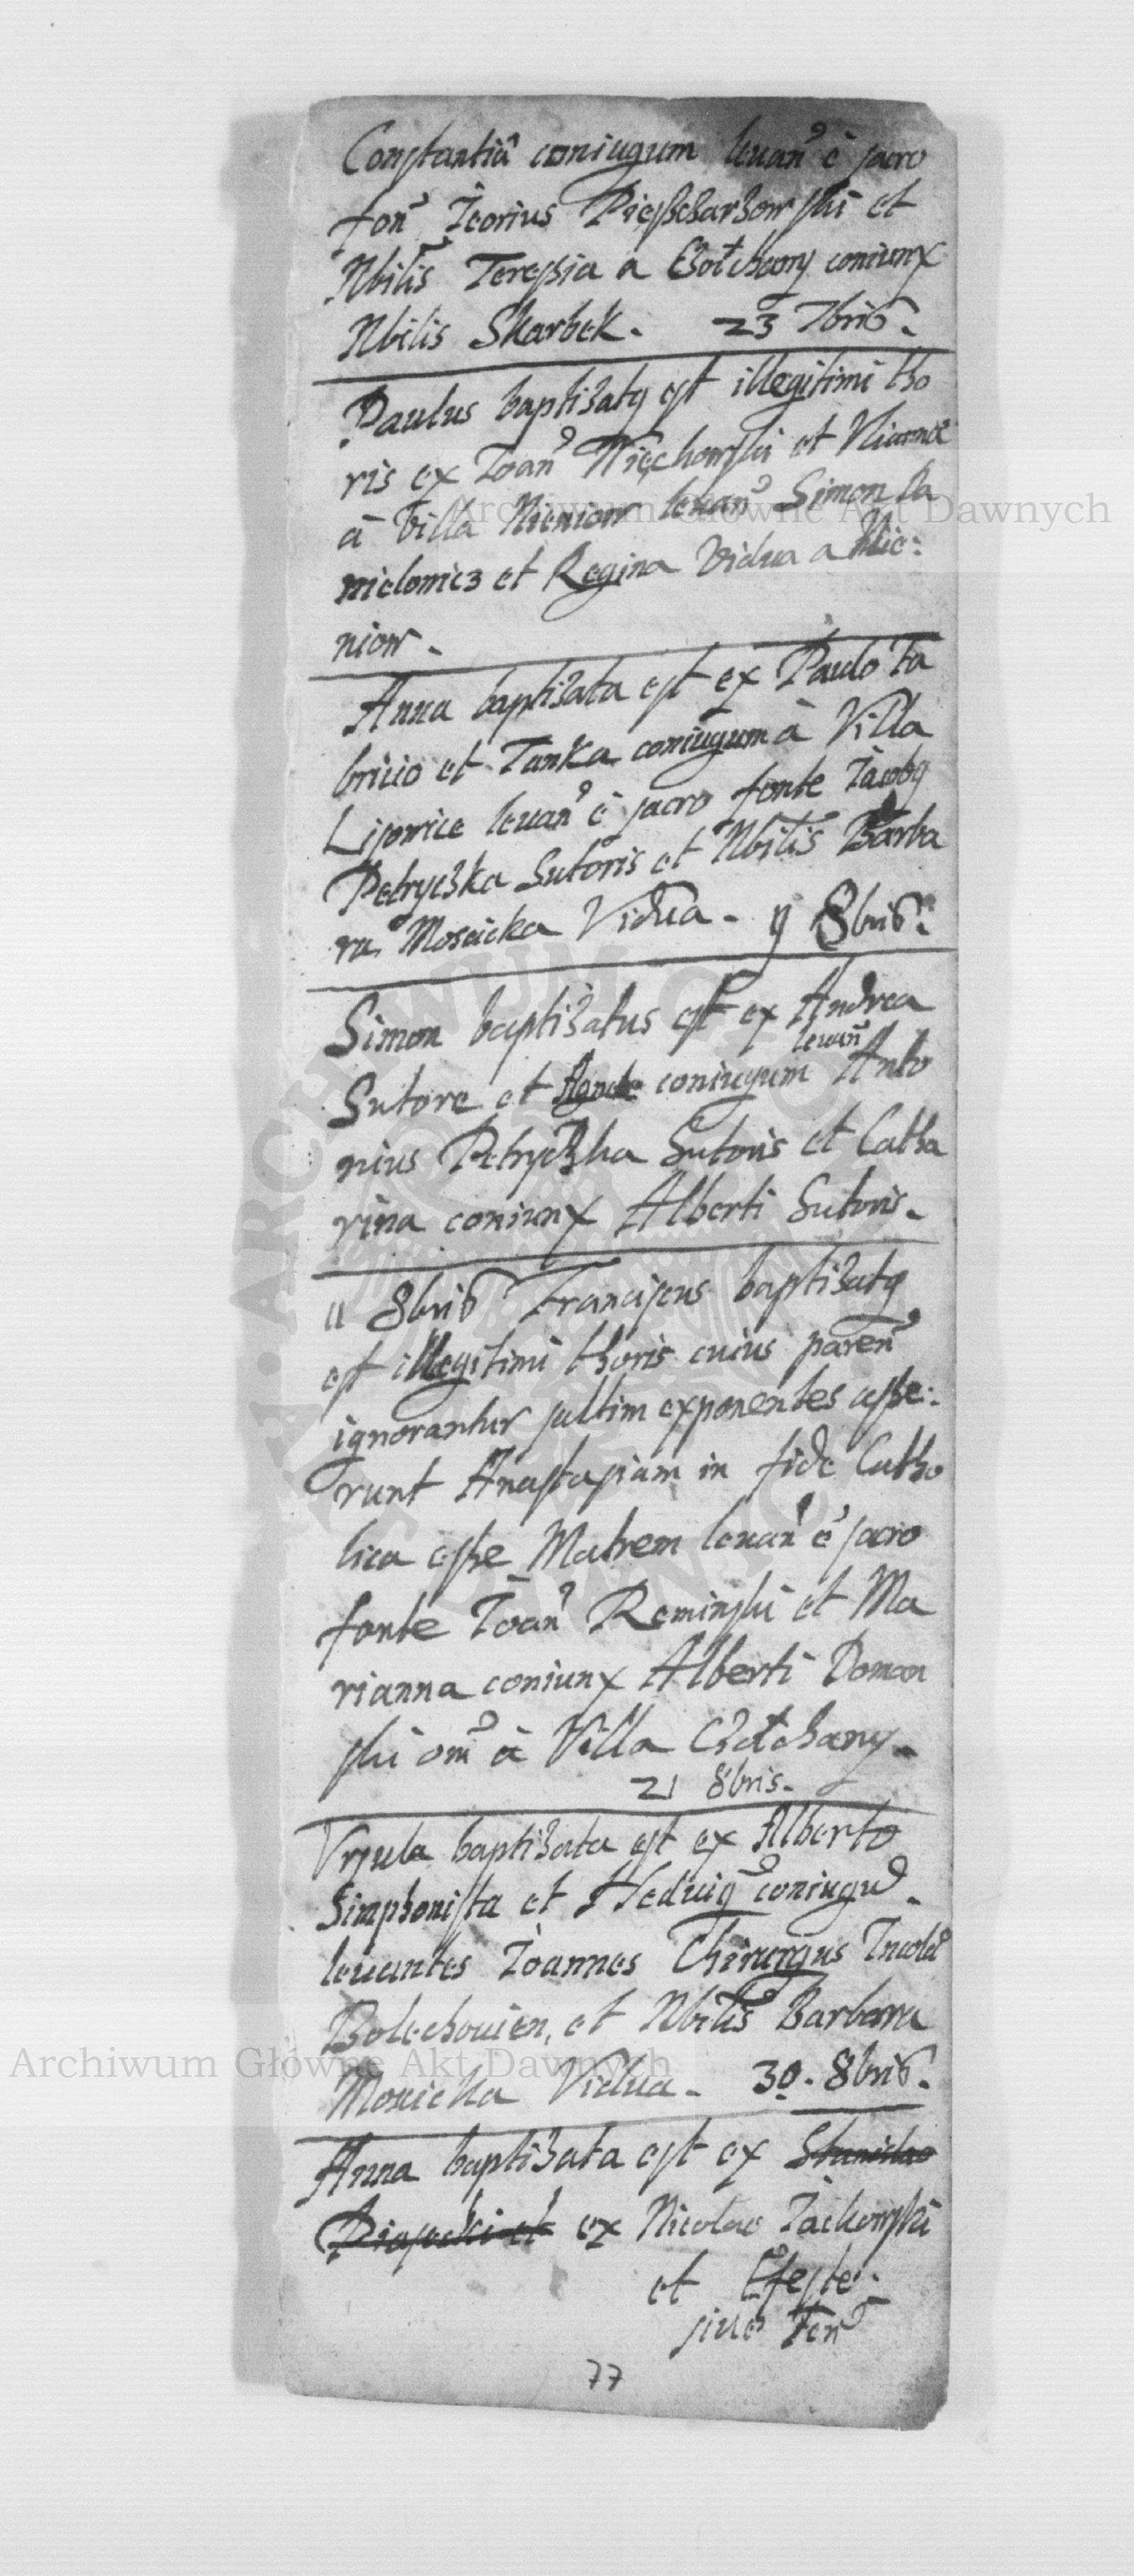 Constantiâ coniugum leuan̄ è sacro
fon̄ Jeorius Pieskbarkowski et
Nbilis Teressia a coniunx
Nbilis Skarbek. 23 7bris.
Paulus baptizatg est illegitimi tho
ris ex Joan̄ Wiechowski et
à Villa Nieniow leuan̄ Simon Da
nielowicz et Regina Vidua a Nie:
niow.
Anna baptizata est ex Paulo Fa
bricio et Tanka coniugum à Villa
Lisowice leuan̄ è sacro fonte Jacobg
Petryczka Sutoris et Nbilis Barba
ra Moscicka Vidua. 8bris.
Simon baptizatus est ex Andrea
leuan̄
Sutore et coniugum Anto
nius Petryczka Sutoris et Catha
rina coniunx Alberti Sutoris.
11 8bris Franciscus baptizatg
est illegitimi thoris cuius paren̄
ignorantur saltim exponentes asse:
runt Anastasiam in fide Catho
lica esse Matrem leuan̄ è sacro
fonte Joan̄ Reminski et Ma
rianna coniunx Alberti Doman
ski om̄ à Villa
21 8bris.
Vrsula baptizata est ex Alberto
Simphonista et Heduig coniugū.
leuantes Joannes Chirurgus Incola
Bolechouien, et Nbilis Barbara
Moscicka Vidua. 30. 8bris.
Anna baptizata est ex Stanislao
Piasecki et ex Nicolao Jackowski
et
siue Fen̄
77
Archiwum Główne Akt Dawnych
Archiwum Główne Akt Dawnych